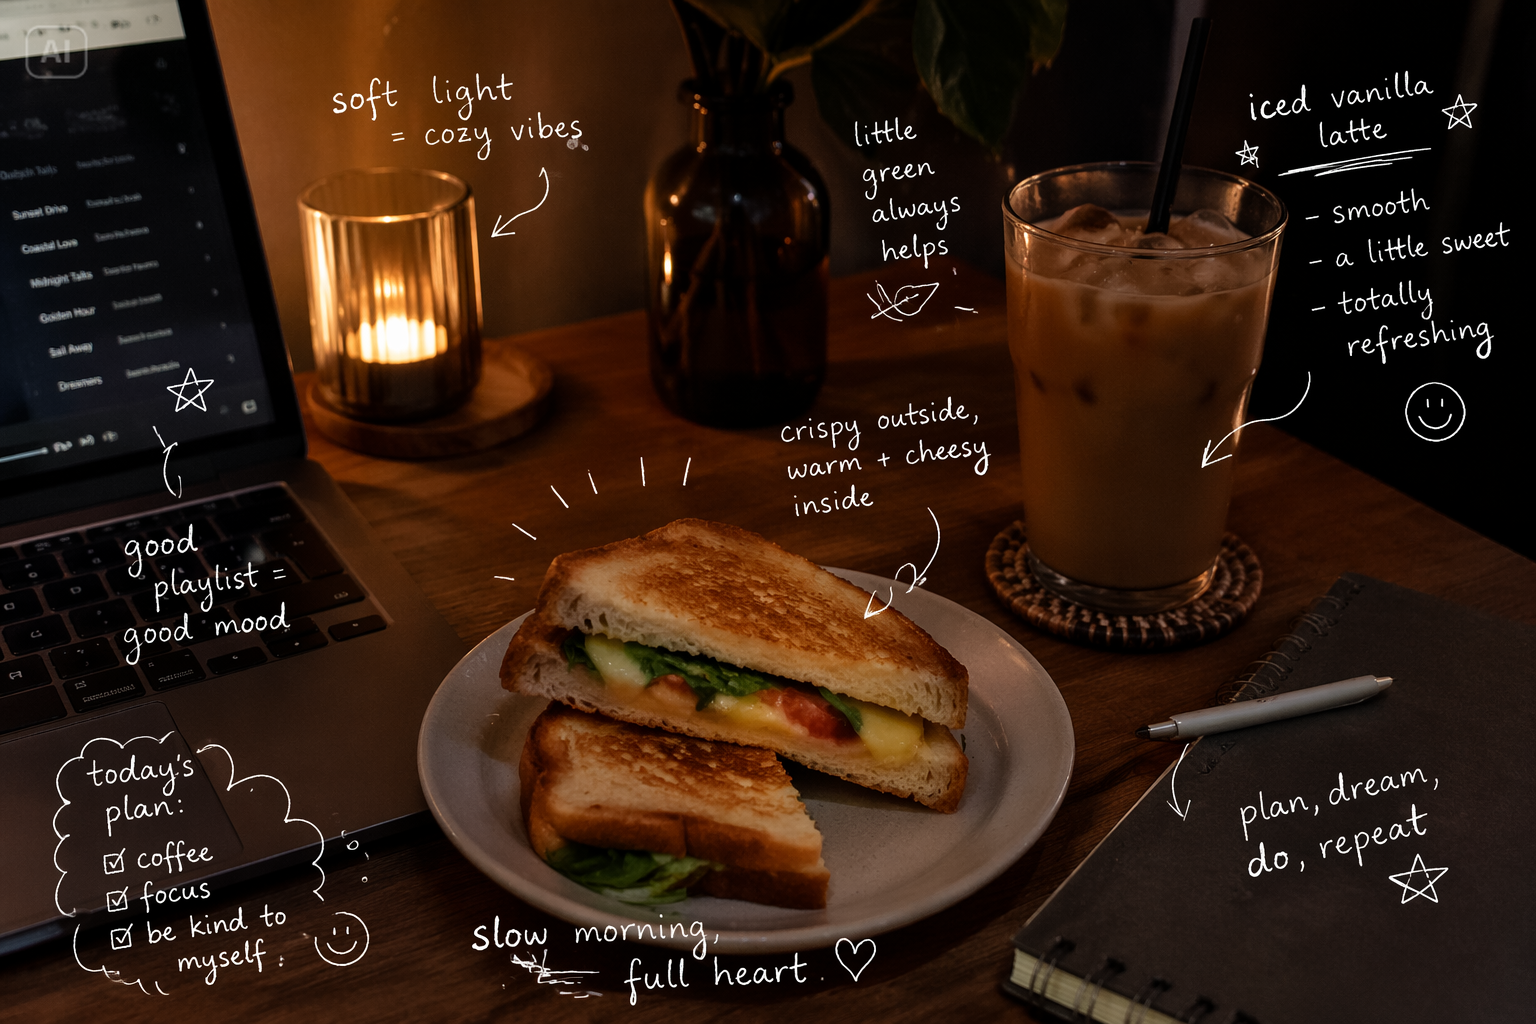 AI
soft light
= cozy vibes
little
green
always
helps
iced vanilla
latte
- smooth
- a little sweet
- totally
refreshing
Sunset Drive
Coastal Love
Midnight Talks
Golden Hour
Sail Away
Dreamers
crispy outside,
warm + cheesy
inside
good
playlist =
good mood
today's
plan:
☑ coffee
☑ focus
☑ be kind to
myself :
plan, dream,
do, repeat
slow morning,
full heart.